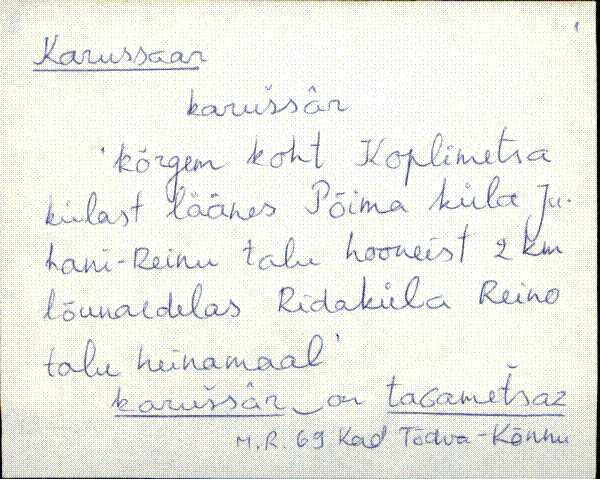 1
Karussaar
karušsâr
'kõrgem koht Koplimetsa
külast läänes Põima küla Ju-
hani-Reinu talu hooneist 2 km
lõunaedelas Ridaküla Reino
talu heinamaal'
karušsâr on taGametsaz
M.R. 69 Kad Tõdva-Kõnnu